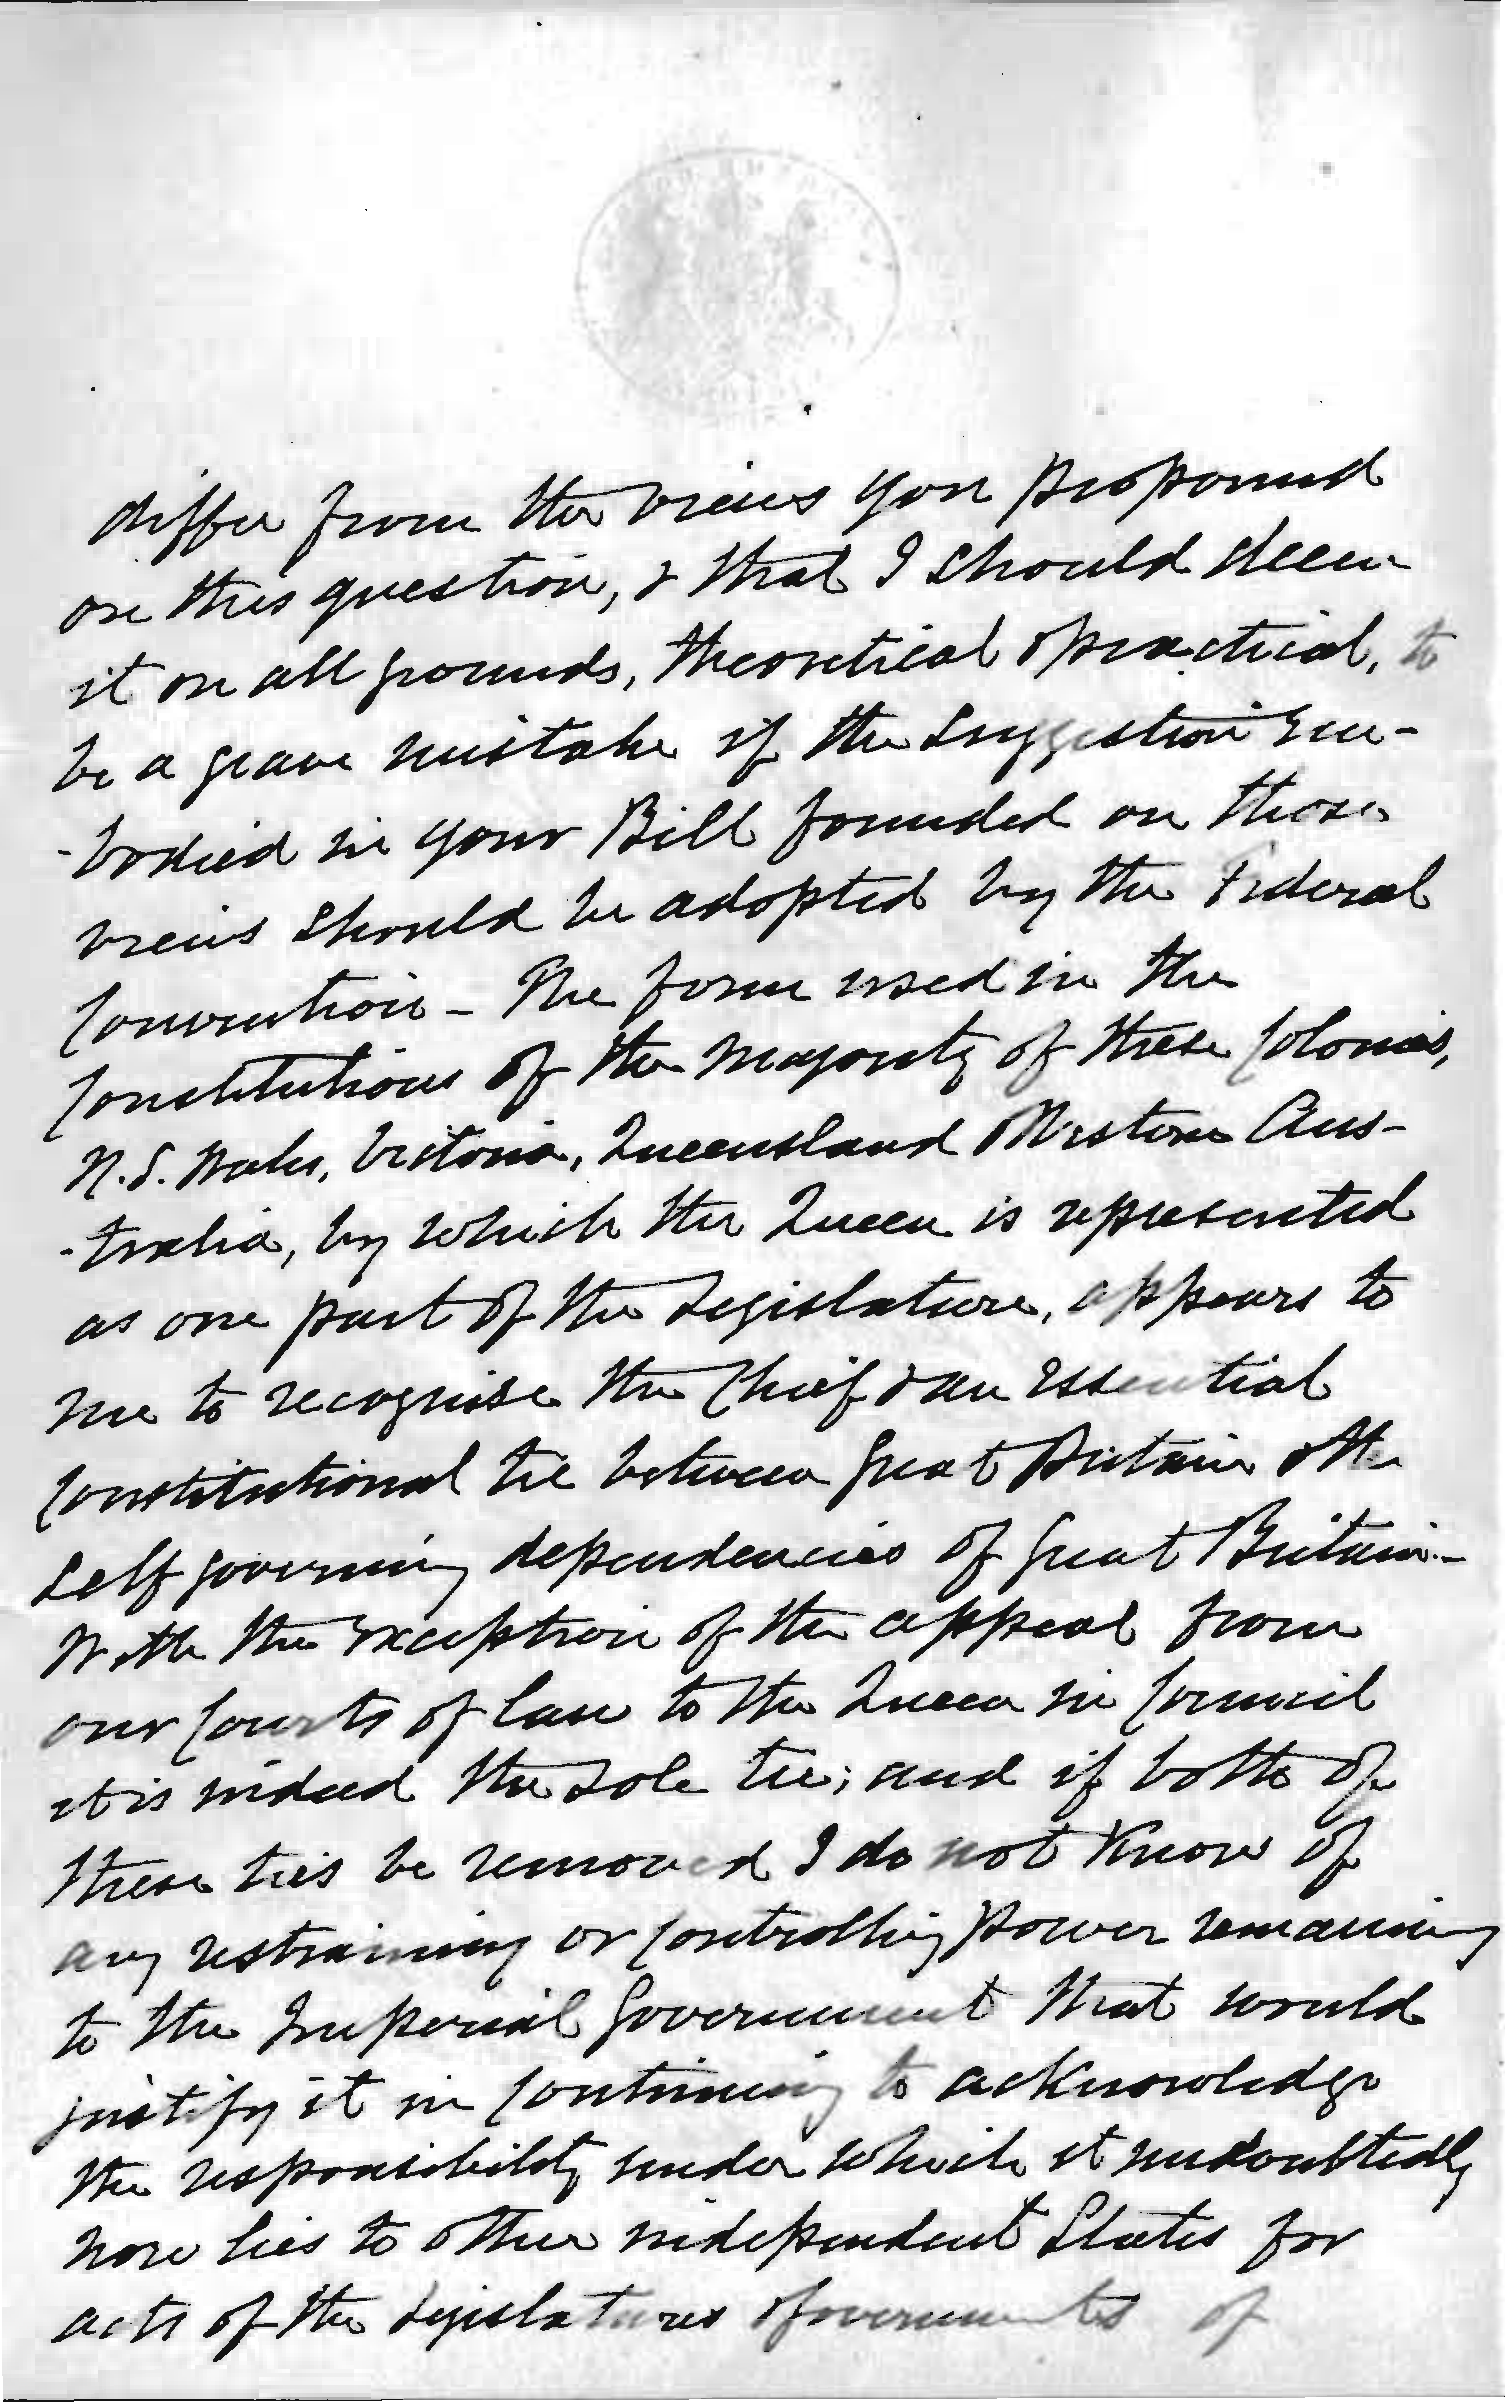 differ from the views you propound
on this question, & that I should deem
it on all grounds, theoretical & practical, to
be a grave mistake if the suggestion em-
-bodied in your Bill founded on those
views should be adopted by the Federal
Convention – The form used in the
Constitutions of the majority of these Colonies,
N.S. Wales, Victoria, Queensland & Western Aus-
-tralia, by which the Queen is represented
as one part of the Legislature, appears to
me to recognise the chief & an essential
Constitutional tie between Great Britain & the
self governing dependencies of Great Britain –
With the exception of the appeal from
our Courts of law to the Queen in Council
it is indeed the sole tie; and if both of
these ties be removed I do not know of
any restraining or controlling power remaining
to the Imperial Government that would
justify it in continuing to acknowledge
the responsibility under which it undoubtedly
now lies to other independent States for
acts of the Legislatures & Governments of